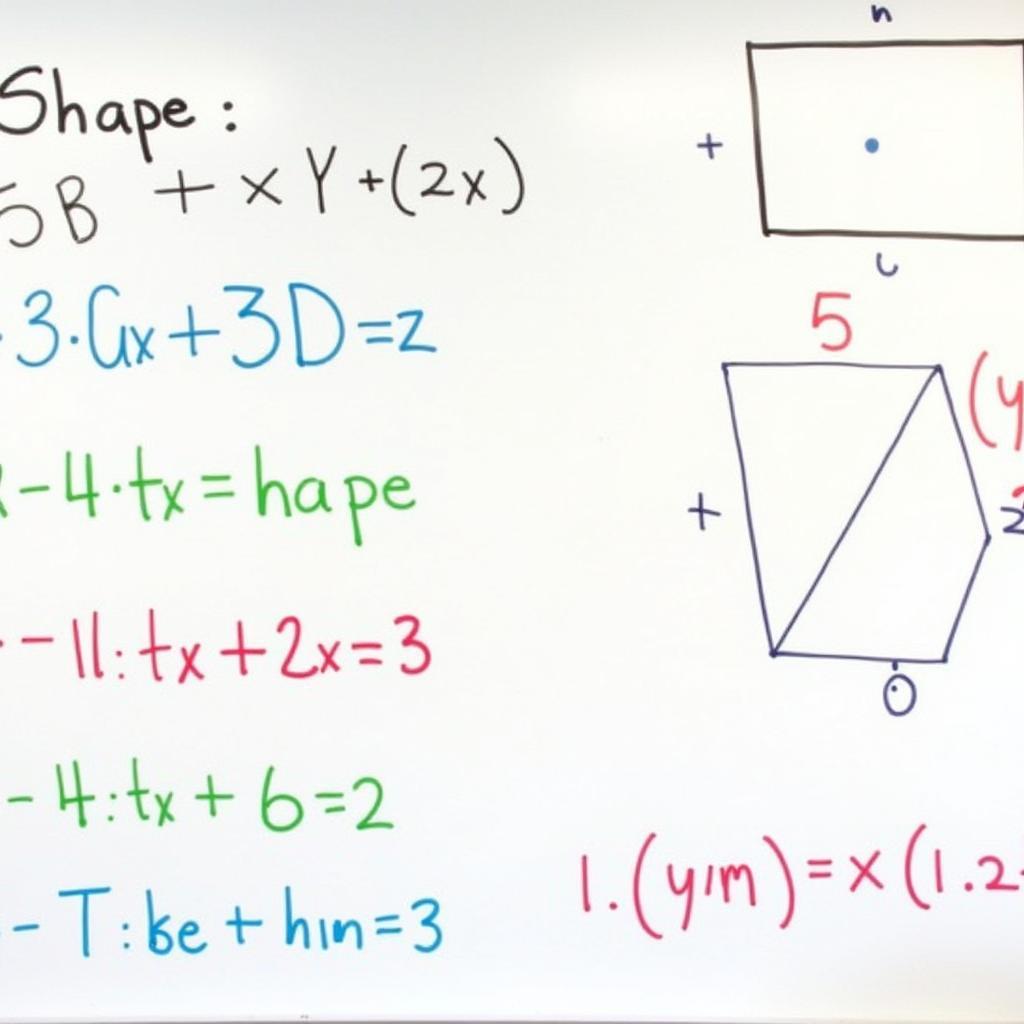 Shape :
5B + x Y + (2x)
3.Gx + 3D = z
- 4.tx = hape
- 11: tx + 2x = 3
- 4: tx + 6 = 2
- T: be + hin = 3
n
+
5
(y
+
2
O
1. (yim) = x (1.2